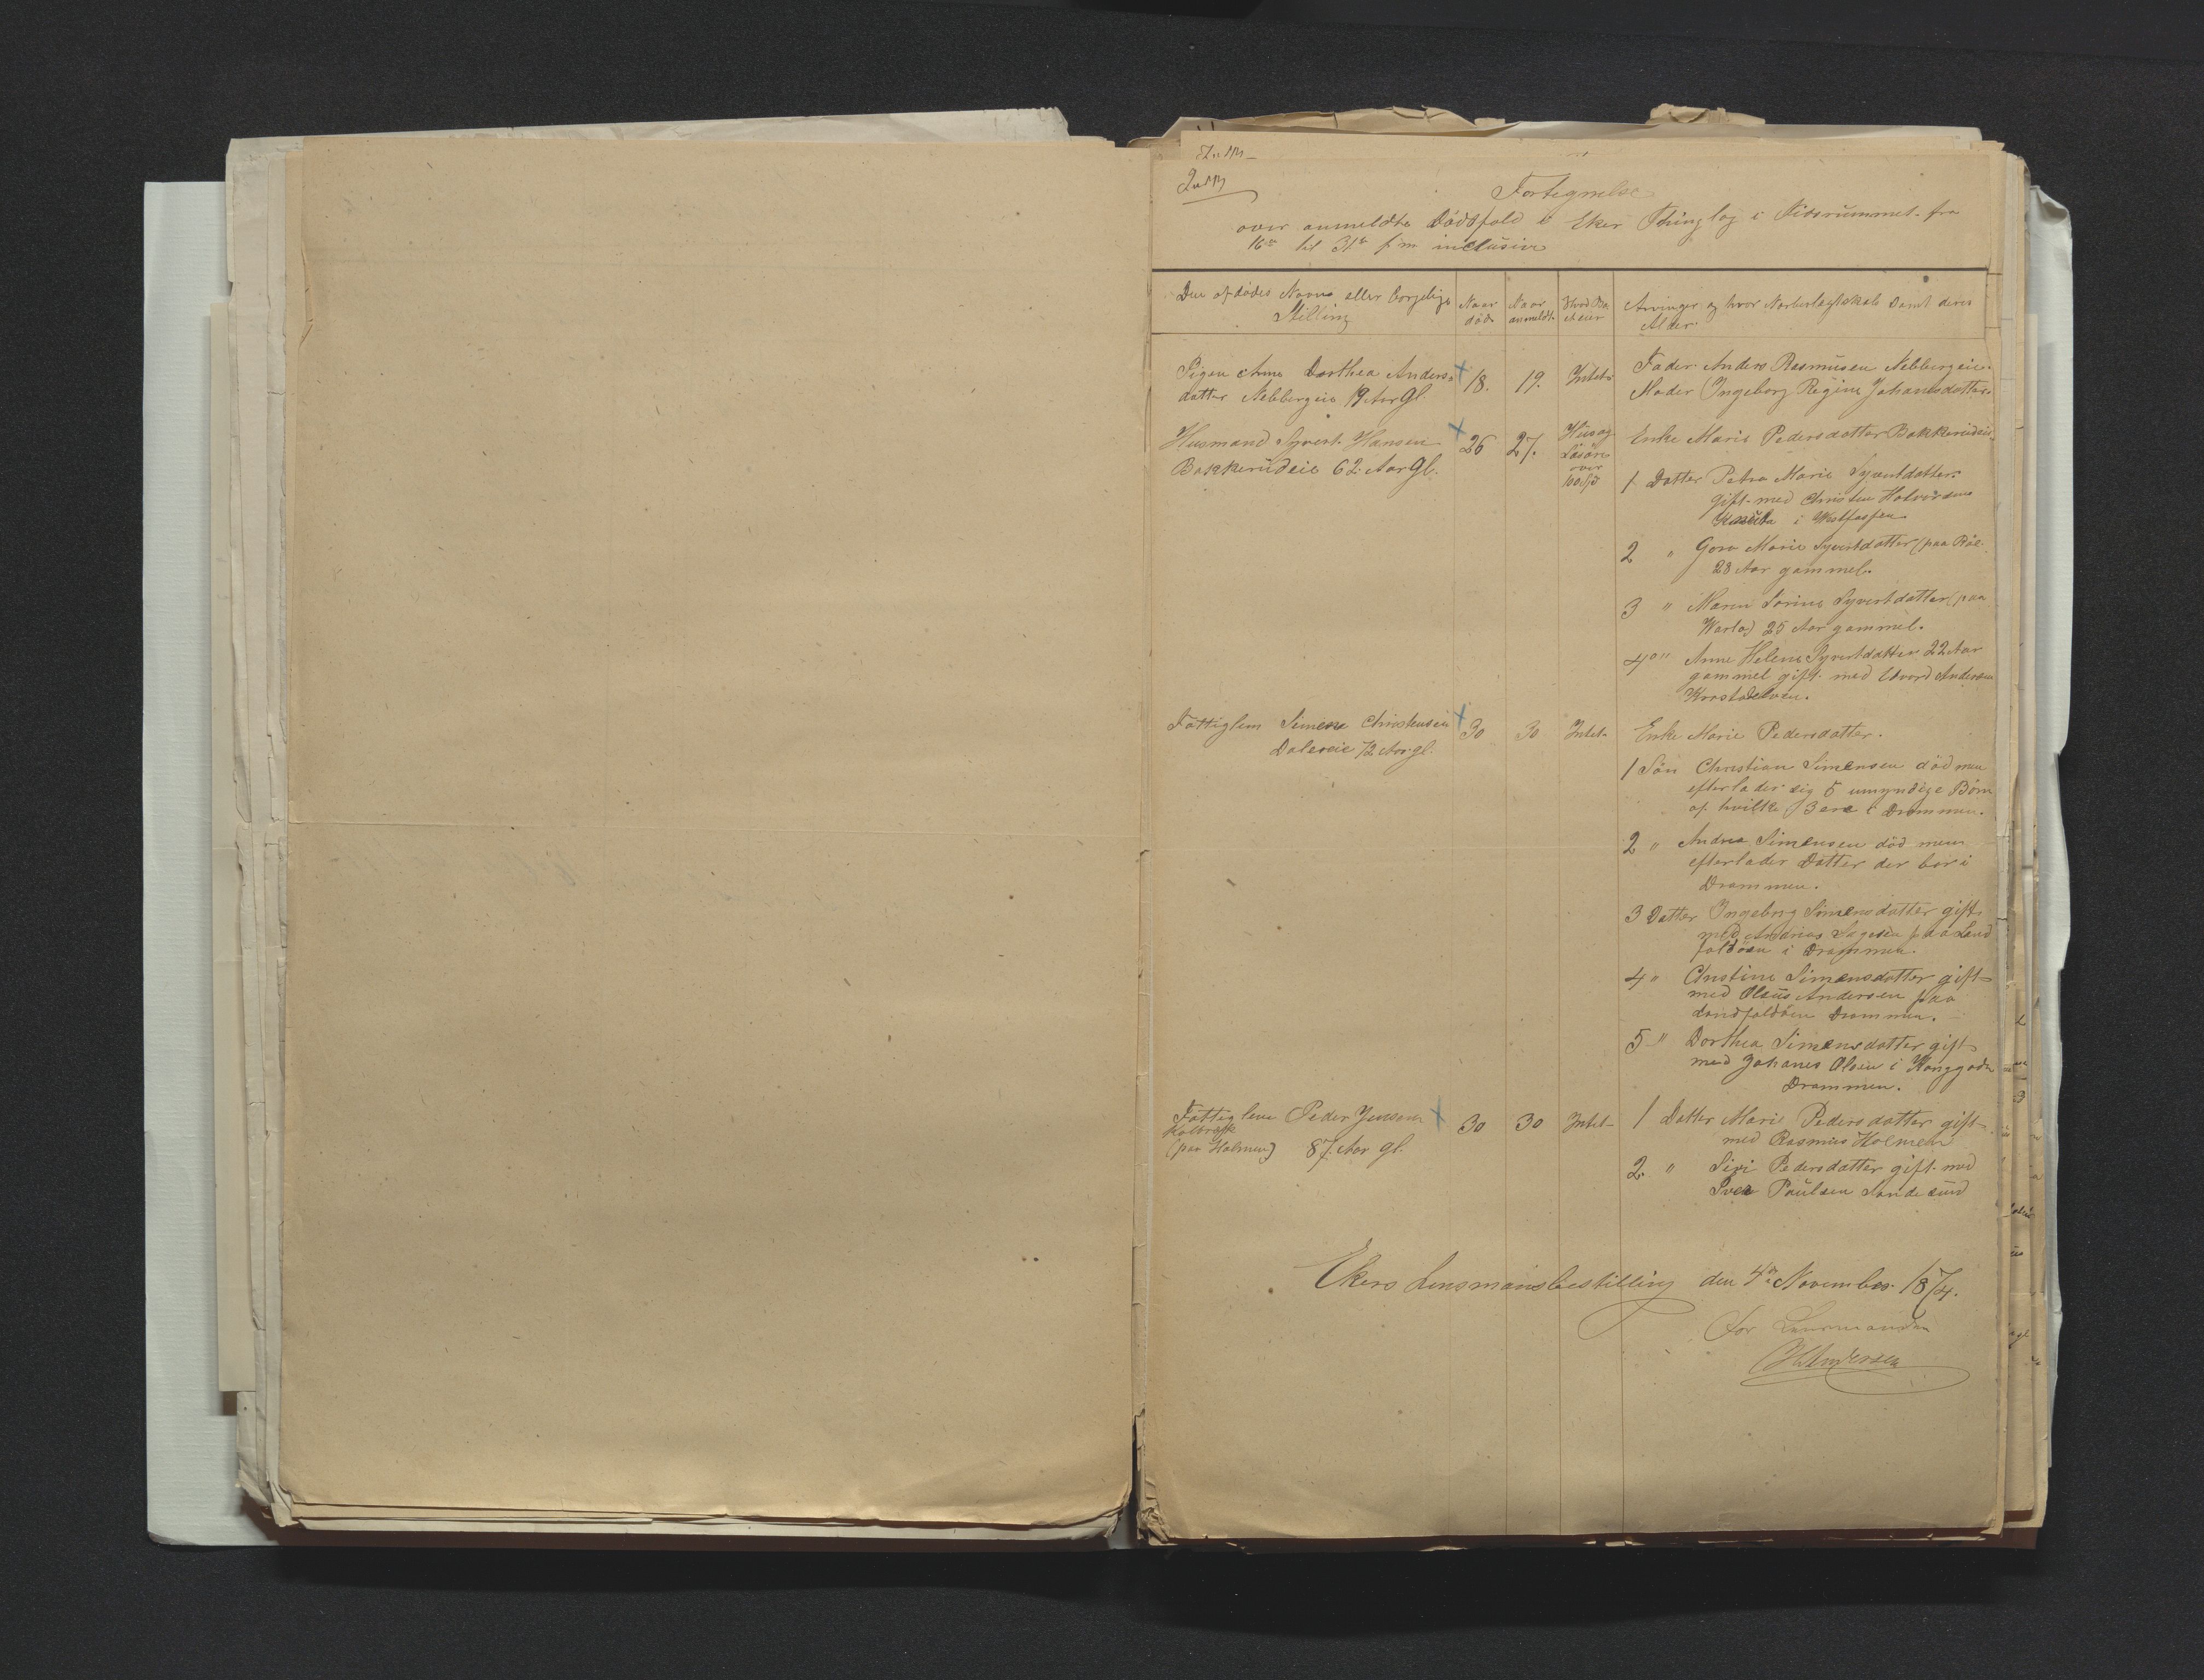 Fortegnelse
over anmeldte Dödsfald i Eker Thinglag i Tidsrummet fra
16de til 31te f.m. inclusive
Den afdödes Navn eller borgelige
Stilling
Naar
död
Naar
anmeldt
Hvad Bo
et eier
Arvinger og hvor Nærbeslægtskab samt deres
Alder.
Pigen Anne Dorthea Anders-
datter Nebbergeie 19 Aar Gl.
18.
19.
Intet
Fader Anders Rasmusen Nebbergeie.
Moder Ingeborg Regine Johanesdatter.
Husmand Syvert Hansen
Bakkerudeie 62 Aar Gl.
26
27.
Hus og
Lösöre
over
100 Spd
Enke Marie Pedersdatter Bakkerudeie
1 Datter Petra Marie Syvertdatter.
gift med Christen Halvorsen
i Westfossen
2 " Gora Marie Syvertdatter (paa
28 Aar gammel.
3 " Maren Sorine Syvertdatter (paa
Warlo) 25 Aar gammel.
4 " Anne Helene Syvertdatter 22 Aar
gammel gift med Edvard Andersen
Fattiglem Simen Christensen
Daleneie 72 Aar gl.
30
30
Intet
Enke Marie Pedersdatter.
1 Sön Christian Simensen död men
efterlader sig 5 umyndige Börn
af hvilke 3 ere i Drammen.
2 " Andrea Simensen död men
efterlader Datter der bor i
Drammen.
3 Datter Ingeborg Simensdatter gift
med Andrias paa Land
faldöen i Drammen.
4 " Christine Simensdatter gift
med Olaus Andersen paa
Landfaldöen Drammen.
5 " Dorthea Simensdatter gift
med Johanes Olsen i Konggada
Drammen.
Fattiglem Peder Jensen
Kolbræk
(paa Holmen) 87 Aar gl.
30
30
Intet
1 Datter Marie Pedersdatter gift
med Rasmus Holmen
2. " Siri Pedersdatter gift med
Sven Paulsen Sandesund
Ekers Lensmansbestilling den 4de November 1874.
For Lensmanden
H Andersen